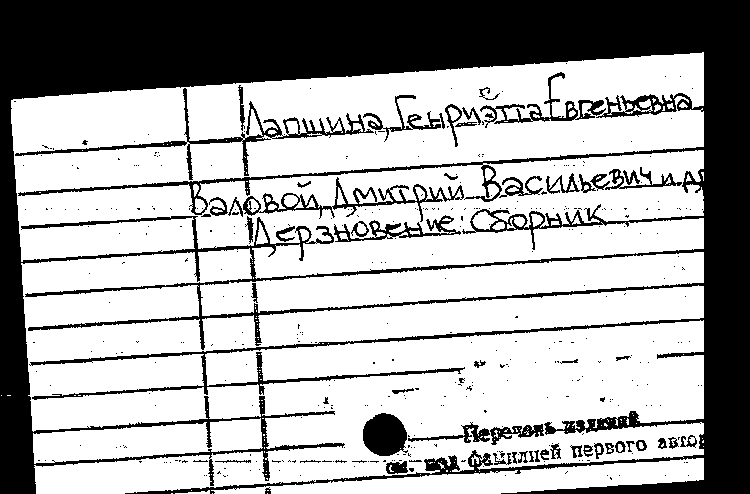 Лапшина, Генриэтта Евгеньевна
Валовой, Дмитрий Васильевич и др
Дерзновение: Сборник
Перечень изданий
см. под фамилией первого автор